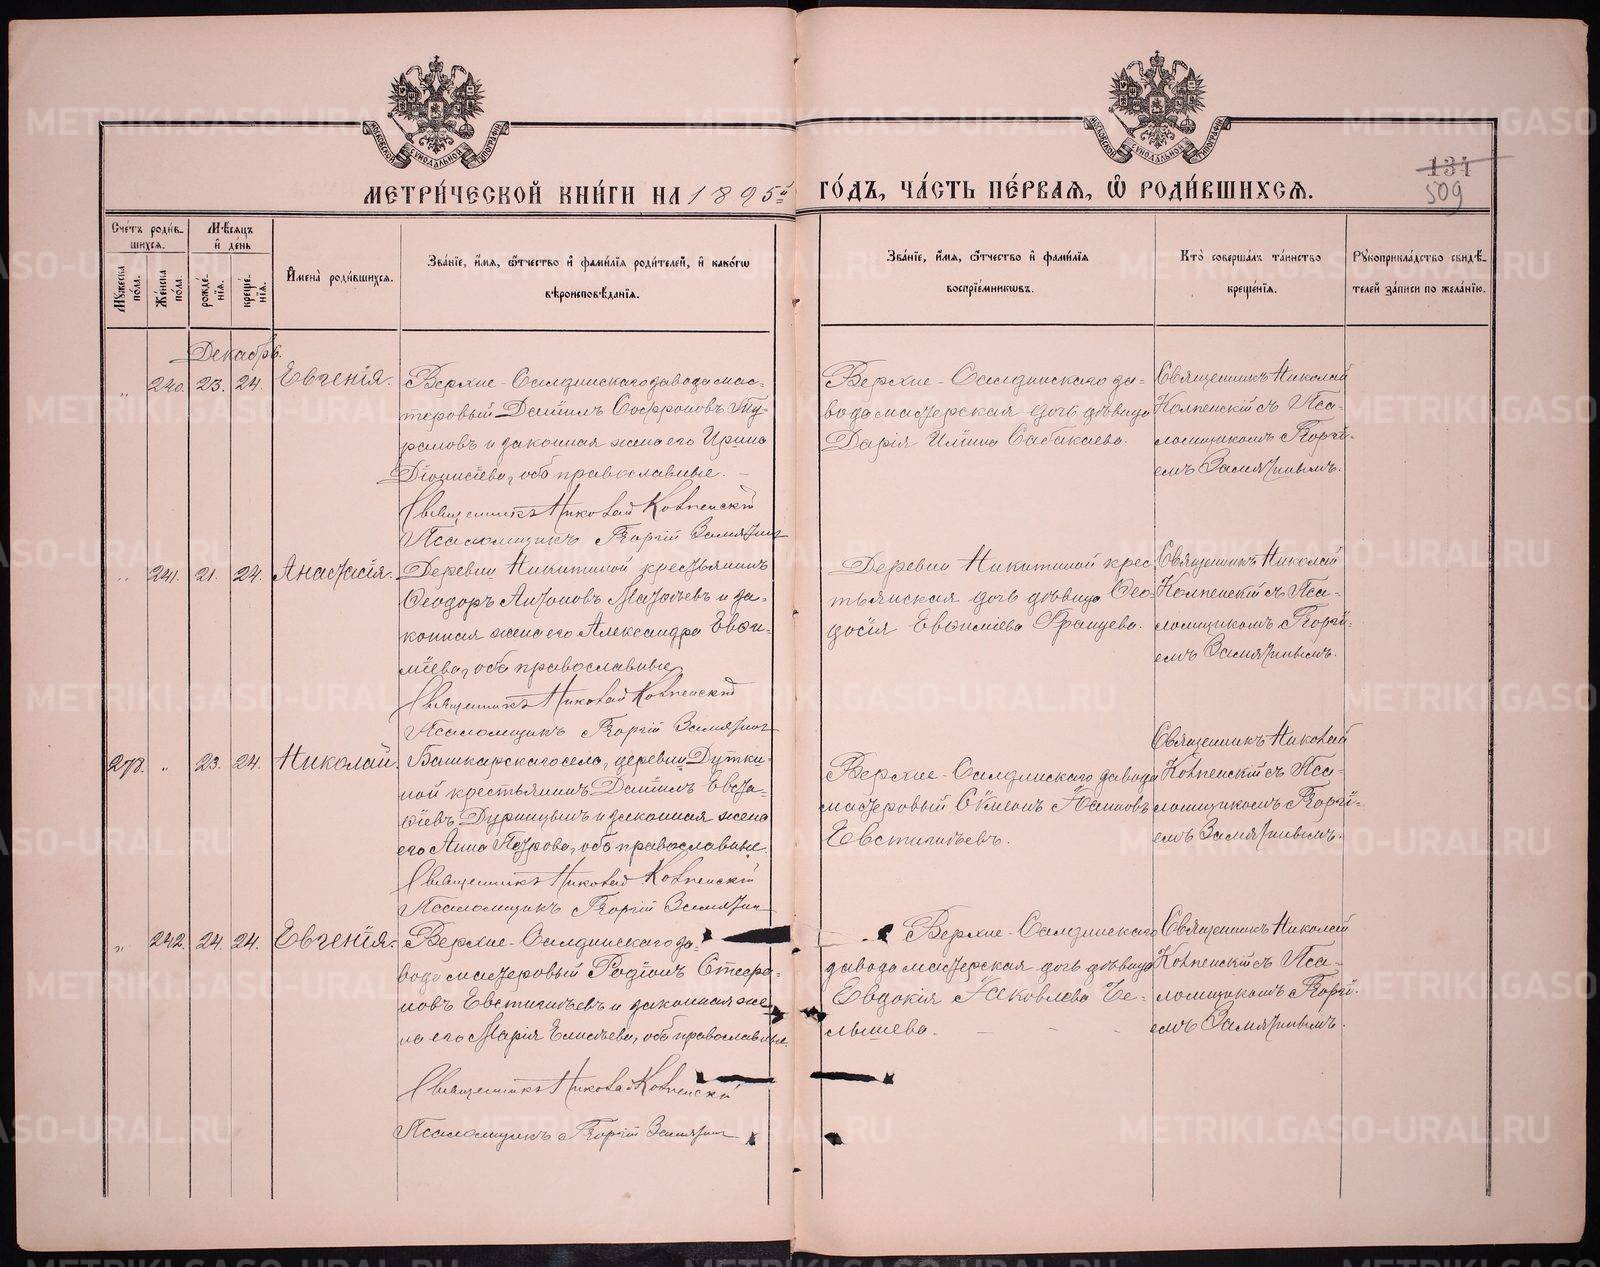 МОСКОВСКОЙ СУНОДАЛЬНОЙ ТИПОГРАФІИ
МОСКОВСКОЙ СУНОДАЛЬНОЙ ТИПОГРАФІИ
134
509
МЕТРИ́ЧЕСКОЙ КНИ́ГИ НА 1895й ГО́ДЪ, ЧА́СТЬ ПЕ́РВАѦ, Ѡ҆ РОДИ́ВШИХСѦ.
Сче́тъ роди́в-
шихсѧ.
Мꙋ́жеска по́ла.
Же́нска по́ла.
Мѣ́сѧцъ
и҆ де́нь
рожде́-нїѧ.
креще́-нїѧ.
И҆мена̀ роди́вшихсѧ.
Зва́нїе, и҆́мѧ, ѻ҆́тчество и҆ фами́лїѧ роди́телей, и҆ како́гѡ
вѣроисповѣ́данїѧ.
Зва́нїе, и҆́мѧ, ѻ҆́тчество и҆ фами́лїѧ
воспрїе́мникѡвъ.
Кто̀ соверша́лъ та́инство
креще́нїѧ.
Рꙋкоприкла́дство свидѣ́-
телей за́писи по жела́нїю.
Декабрь.
„ 240. 23. 24. Евгенія.
Верхне-Салдинскаго завода мас-
теровый Даніилъ Софроновъ Ту-
рановъ и законная жена его Ирина
Діонисіева, оба православные.
Священникъ Николай Колпенскій
Псаломщикъ Георгій Замятнинъ
Верхне-Салдинскаго за-
вода мастерская дочь дѣвица
Дарія Иліина Сабакаева.
Священникъ Николай
Колпенскій съ Пса-
ломщикомъ Георгі-
емъ Замятнинымъ.
„ 241. 21. 24. Анастасія.
Деревни Никитиной крестьянинъ
Ѳеодоръ Антоновъ Матвѣевъ и за-
конная жена его Александра Евѳи-
міева, оба православные
Священникъ Николай Колпенскій
Псаломщикъ Георгій Замятнинъ
Деревни Никитиной крес-
тьянская дочь дѣвица Ѳео-
досія Евѳиміева Францева.
Священникъ Николай
Колпенскій съ Пса-
ломщикомъ Георгі-
емъ Замятнинымъ.
278. „ 23. 24. Николай.
Башкарскаго села, деревни Дутки-
ной крестьянинъ Даніилъ Евста-
ѳіевъ Дурницынъ и законная жена
его Анна Петрова, оба православные.
Священникъ Николай Колпенскій
Псаломщикъ Георгій Замятнинъ
Верхне-Салдинскаго завода
мастеровый Сѵмеонъ Іоанновъ
Евстигнѣевъ.
Священникъ Николай
Колпенскій съ Пса-
ломщикомъ Георгі-
емъ Замятнинымъ.
„ 242. 24. 24. Евгенія.
Верхне-Салдинскаго за-
вода мастеровый Родіонъ Стефа-
новъ Евстигнѣевъ и законная же-
на его Марія Елисѣева, оба православные.
Священникъ Николай Колпенскій
Псаломщикъ Георгій Замятнинъ
Верхне-Салдинскаго
завода мастерская дочь дѣвица
Евдокія Іаковлева Че-
лышева.
Священникъ Николай
Колпенскій съ Пса-
ломщикомъ Георгі-
емъ Замятнинымъ.
METRIKI.GASO-URAL.RU